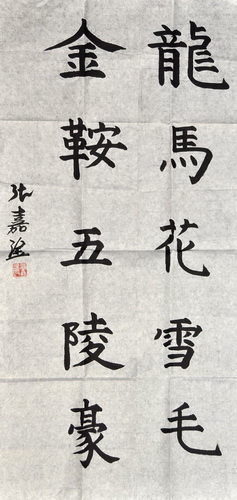 龍馬花雪毛
金鞍五陵豪
張嘉